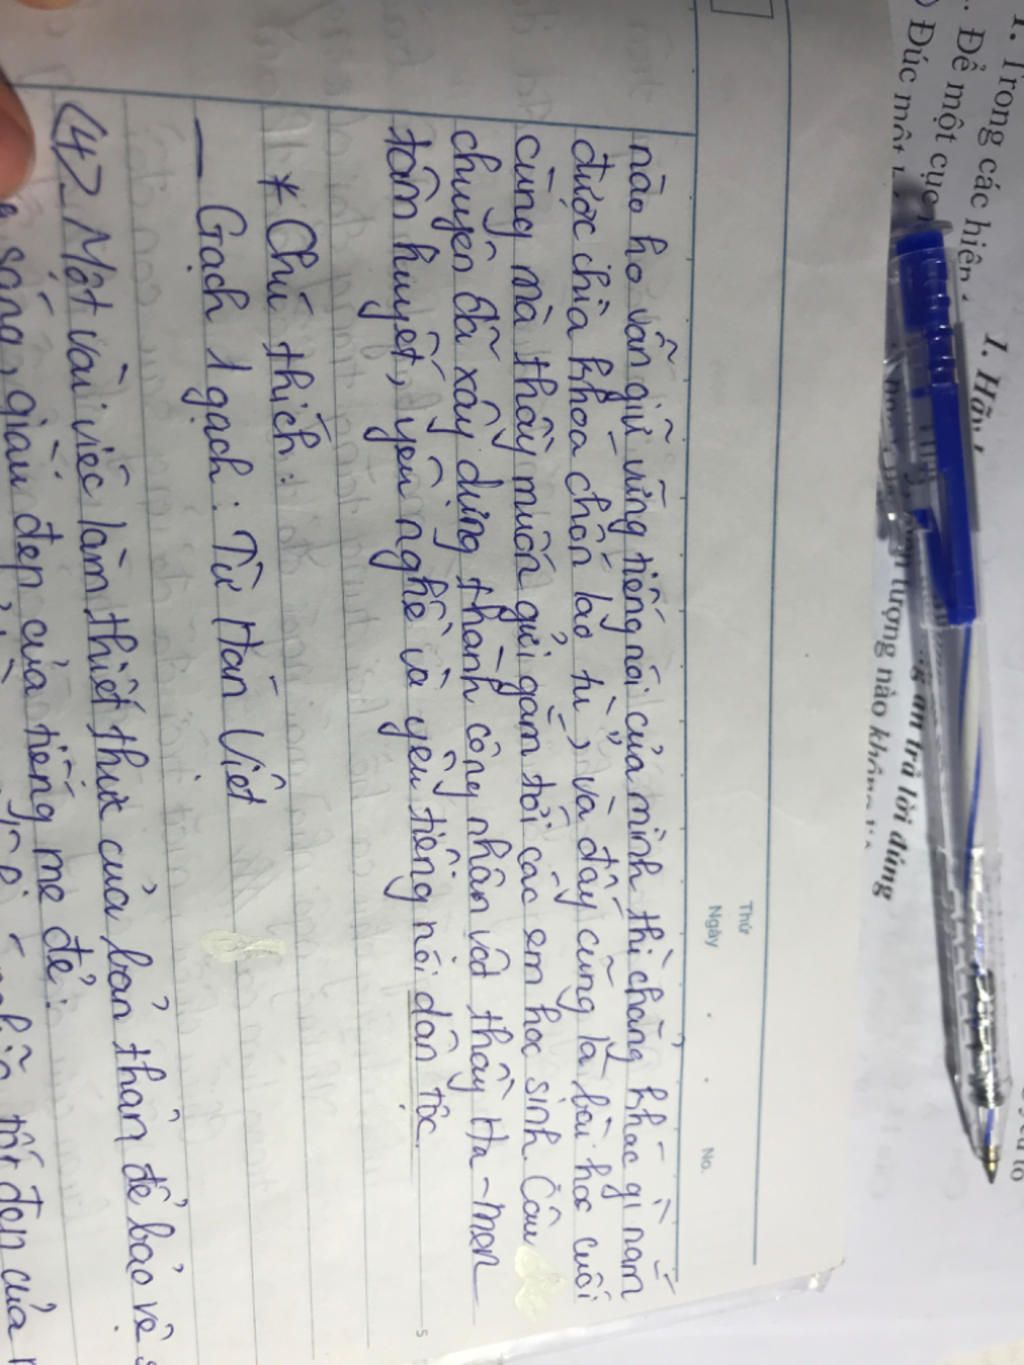 1. Trong các hiện
. Để một cục
Đúc một
1. Hãy
trả lời đúng
tượng nào không
Thứ
Ngày
No.
nào họ vẫn giữ vững tiếng nói của mình thì chẳng khác gì nắm
được chìa khoa chốn lao tù, và đấy cũng là bài học cuối
cùng mà thầy muốn gửi gắm tới các em học sinh. Câu
chuyện đã xây dựng thành công nhân vật thầy Ha-men
tâm huyết, yêu nghề và yêu tiếng nói dân tộc.
* Chú thích:
— Gạch 1 gạch: Từ Hán Việt
(4) Một vài việc làm thiết thực của bản thân để bảo vệ
sáng, giàu đẹp của tiếng mẹ đẻ:
5